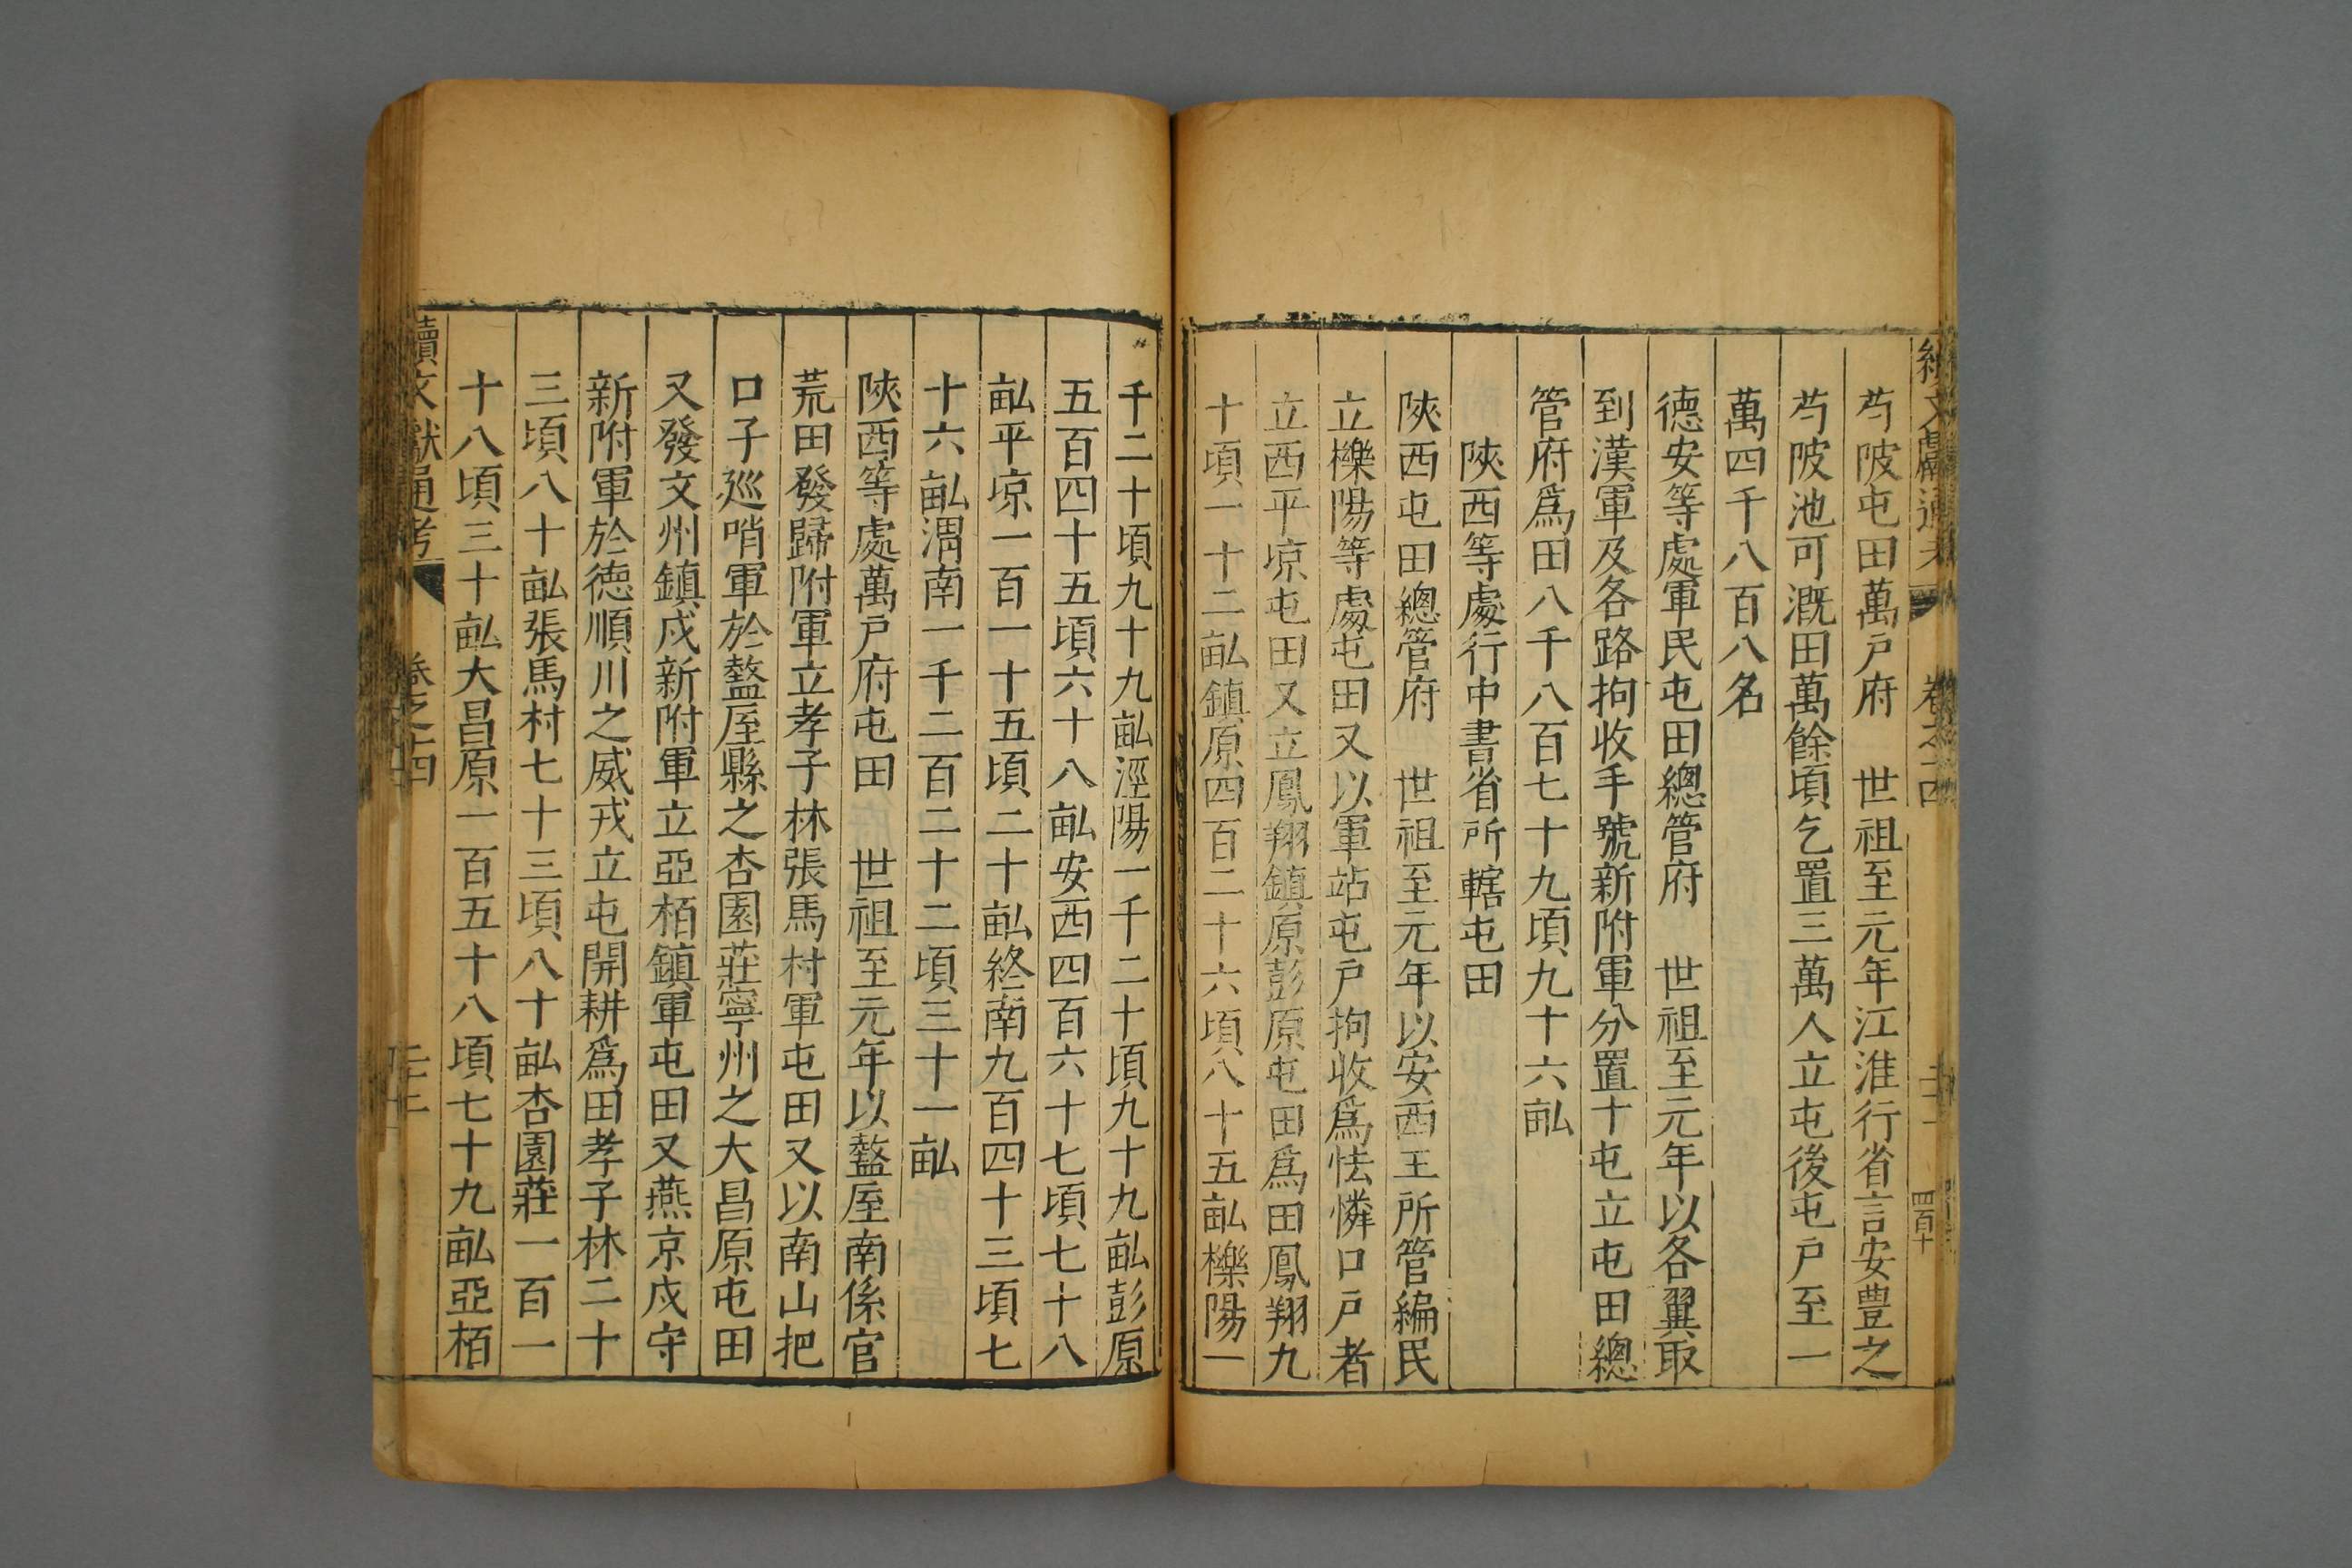 續文獻通考 卷之十四 四百十
芍陂屯田萬戸府　世祖至元年江淮行省言安豊之
芍陂池可溉田萬餘頃乞置三萬人立屯後屯戸至一
萬四千八百八名
德安等處軍民屯田總管府　世祖至元年以各翼取
到漢軍及各路拘收手號新附軍分置十屯立屯田總
管府爲田八千八百七十九頃九十六畝
陜西等處行中書省所轄屯田
陜西屯田總管府　世祖至元年以安西王所管編民
立櫟陽等處屯田又以軍站屯戸拘收爲怯憐口戸者
立西平凉屯田又立鳳翔鎮原彭原屯田爲田鳳翔九
十頃一十二畝鎮原四百二十六頃八十五畝櫟陽一
千二十頃九十九畝涇陽一千二十頃九十九畝彭原
五百四十五頃六十八畝安西四百六十七頃七十八
畝平凉一百一十五頃二十畝終南九百四十三頃七
十六畝渭南一千二百二十二頃三十一畝
陜西等處萬戸府屯田　世祖至元年以盩厔南係官
荒田發歸附軍立孝子林張馬村軍屯田又以南山把
口子巡哨軍於盩厔縣之杏園莊寧州之大昌原屯田
又發文州鎮戍新附軍立亞栢鎮軍屯田又燕京戍守
新附軍於德順川之威戎立屯開耕爲田孝子林二十
三頃八十畝張馬村七十三頃八十畝杏園莊一百一
十八頃三十畝大昌原一百五十八頃七十九畝亞栢
續文獻通考 卷之十四